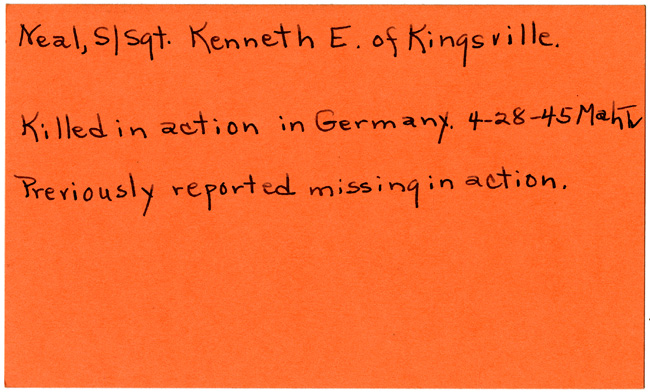 Neal, S/Sgt. Kenneth E. of Kingsville.
Killed in action in Germany. 4-28-45 Mah Tv
Previously reported missing in action.